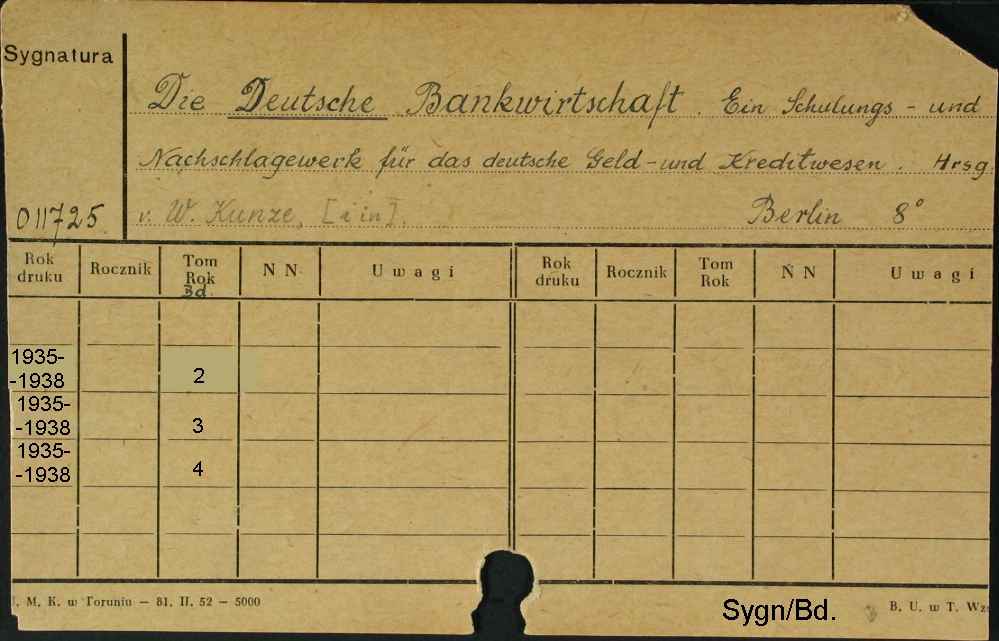 Sygnatura
Die Deutsche Bankwirtschaft. Ein Schulungs- und
Nachschlagewerk für das deutsche Geld- und Kreditwesen. Hrsg.
011725 v. W. Kunze, [i in]. Berlin 8°
Rok druku Rocznik Tom Rok Bd. N N Uwagi Rok druku Rocznik Tom Rok N N Uwagi
1935-
-1938 2
1935-
-1938 3
1935-
-1938 4
M. K. w Toruniu — 81. II. 52 — 5000
Sygn/Bd. B. U. w T.